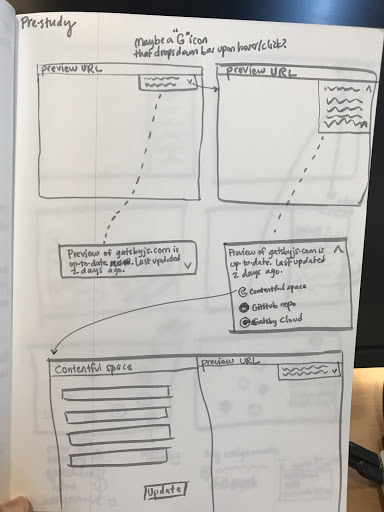 Pre-study
Maybe a "G" icon
that drops down bar upon hover/click?
preview URL
preview URL
Preview of gatsbyjs.com is
up-to-date. Last updated
2 days ago.
Preview of gatsbyjs.com is
up-to-date. Last updated
2 days ago.
Contentful space
GitHub repo
Gatsby Cloud
Contentful space
preview URL
Update